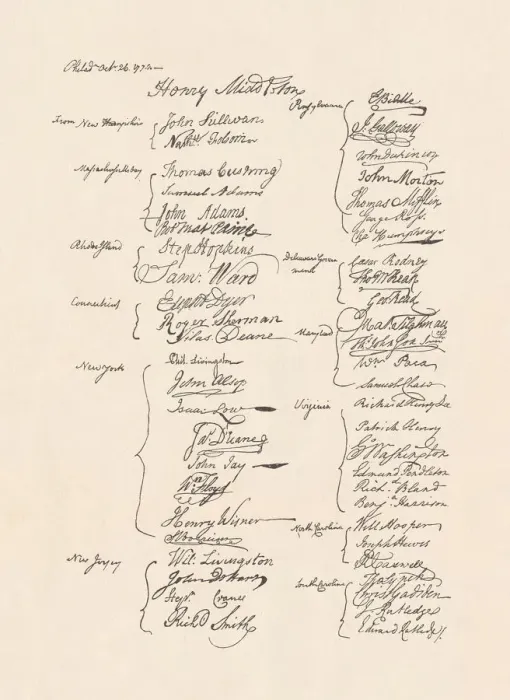 Philad. Oct. 26. 1774
Henry Middleton
From New Hampshire
John Sullivan
Nathl. Folsom
Massachusetts bay
Thomas Cushing
Samuel Adams
John Adams
Rob Treat Paine
Rhode Island
Step Hopkins
Sam: Ward
Connecticut
Elipht Dyer
Roger Sherman
Silas Deane
New York
Phil. Livingston
John Alsop
Isaac Low
Jas. Duane
John Jay
Wm. Floyd
Henry Wisner
S: Boerum
New Jersey
Wil: Livingston
John D
Stepn. Crane
Richd. Smith
Pensylvania
E Biddle
J. Galloway
John Dickinson
John Morton
Thomas Mifflin
George Ross
Cha Humphreys
Delaware Government
Cæsar Rodney
Tho M: Kean
Geo Read
Maryland
Mat. Tilghman
Th. Johnson Junr
Wm. Paca
Samuel Chase
Virginia
Richard Henry Lee
Patrick Henry
G Washington
Edmund Pendleton
Richd. Bland
Benjn. Harrison
North Carolina
Will Hooper
Joseph Hewes
R Caswell
South Carolina
Tho Lynch
Christ Gadsden
J Rutledge
Edward Rutledge